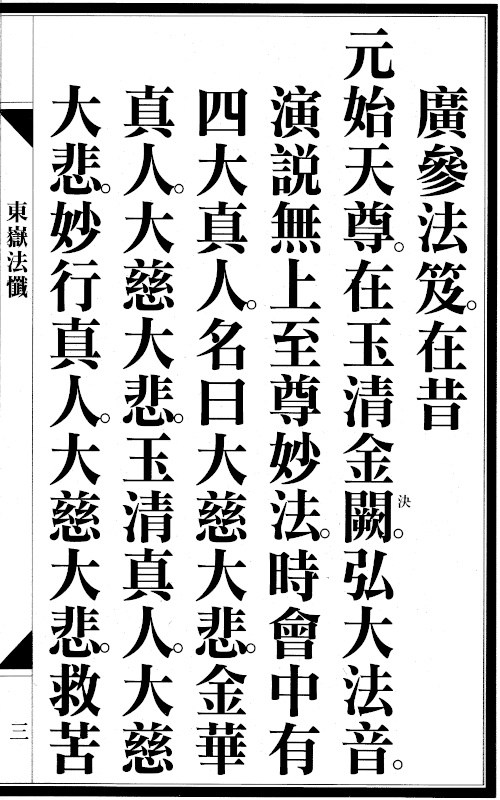 廣參法笈。在昔
元始天尊。在玉清金闕。弘大法音。
決
演説無上至尊妙法。時會中有
四大真人。名曰大慈大悲。金華
真人。大慈大悲。玉清真人。大慈
大悲。妙行真人。大慈大悲。救苦
東嶽法懺
三